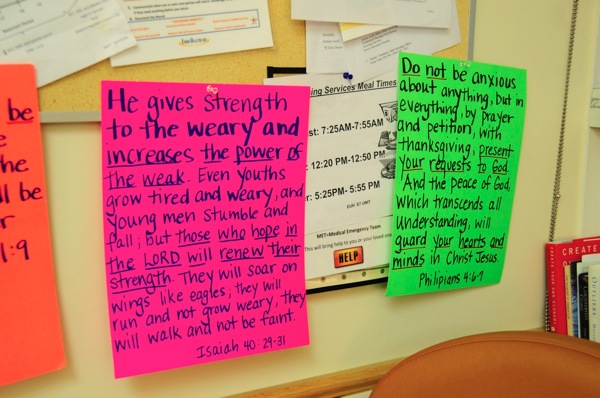 be
the
ll be
r
1:9
He gives strength
to the weary and
increases the power of
the weak. Even youths
grow tired and weary, and
young men stumble and
fall; but those who hope in
the LORD will renew their
strength. They will soar on
wings like eagles; they will
run and not grow weary, they
will walk and not be faint.
Isaiah 40:29-31
ing Services Meal Times
st: 7:25AM-7:55AM
: 12:20 PM-12:50 PM
r: 5:25PM- 5:55 PM
MET=Medical Emergency Team
This will bring help to you or your loved one
HELP
Do not be anxious
about anything, but in
everything, by prayer
and petition, with
thanksgiving, present
your requests to God.
And the peace of God,
which transcends all
understanding, will
guard your hearts and
minds in Christ Jesus.
Philipians 4:6-7
CREATE